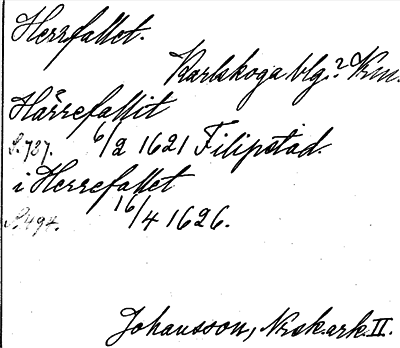 Herrfallet.
Karlskoga blg.? Km.
Härrefallit
S. 737. 6/2 1621 Filipstad.
i Herrefallet
S. 494. 16/4 1626.
Johansson, Nerskark II.